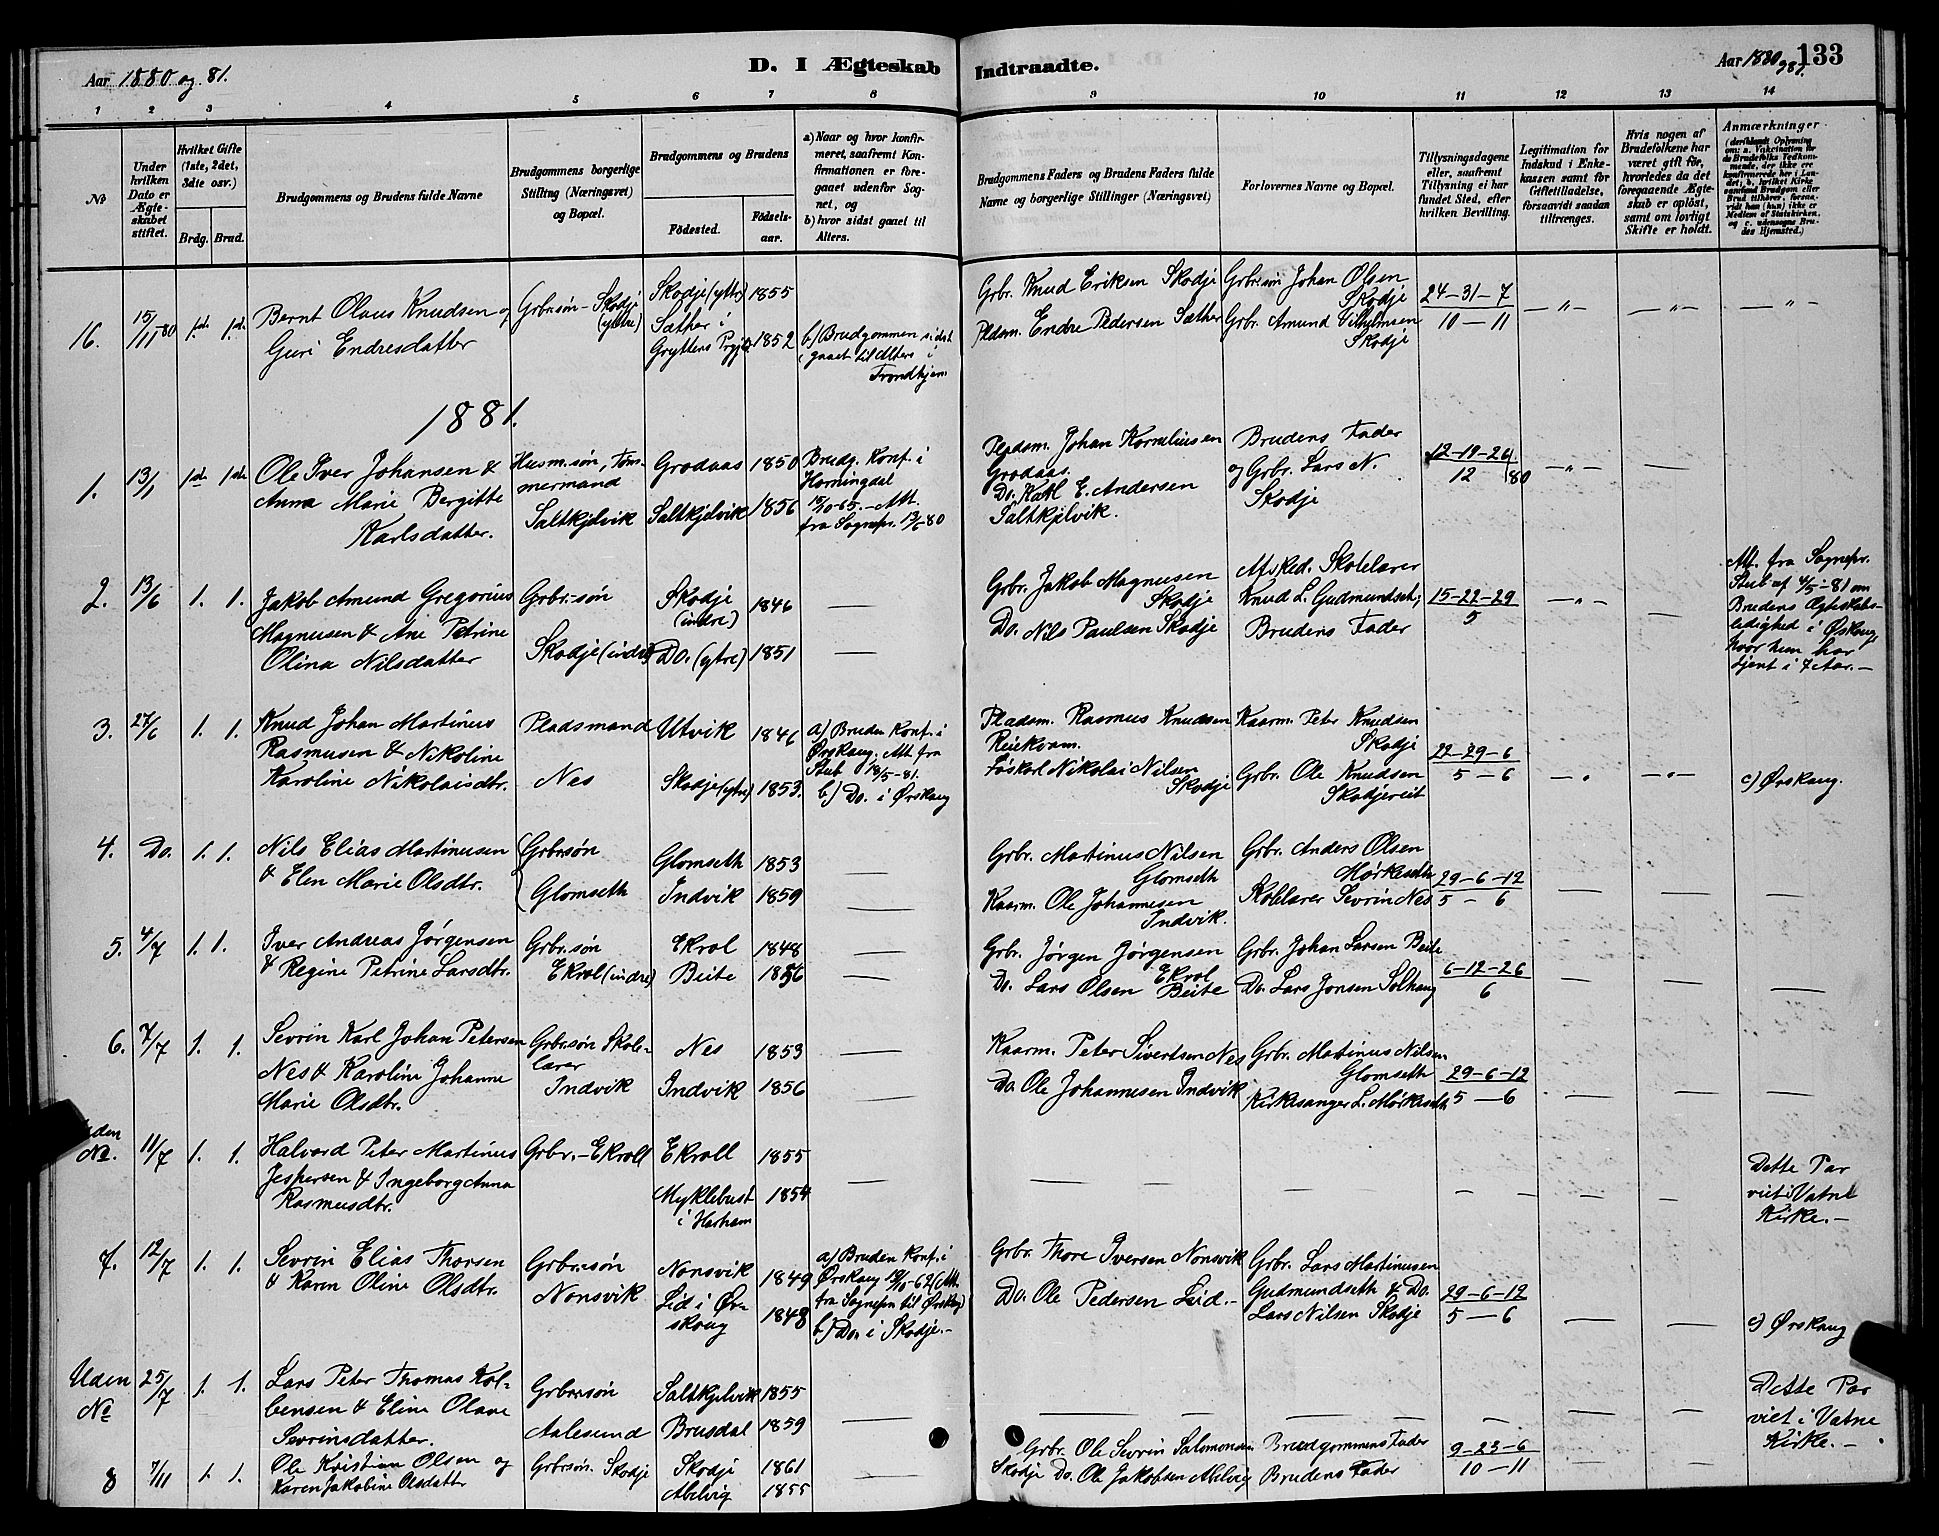 Aar 1880 og 81.
D. I Ægteskab Indtraadte.
Aar 1880 81. 133
1 2 3 4 5 6 7 8 9 10 11 12 13 14
№
Under hvilken Dato er Ægteskabet stiftet.
Hvilket Gifte (1ste, 2det, 3die osv.)
Brdg. Brud.
Brudgommens og Brudens fulde Navne
Brudgommens borgerlige Stilling (Næringsvei) og Bopæl.
Brudgommens og Brudens
Födested. Födsels-aar.
a) Naar og hvor konfirmeret, saafremt Konfirmationen er foregaaet udenfor Sognet, og
b) hvor sidst gaaet til Alters.
Brudgommens Faders og Brudens Faders fulde Navne og borgerlige Stillinger (Næringsvei)
Forlovernes Navne og Bopæl.
Tillysningsdagene eller, saafremt Tillysning ei har fundet Sted, efter hvilken Bevilling.
Legitimation for Indskud i Enkekassen samt for Giftetilladelse, forsaavidt saadan tiltrænges.
Hvis nogen af Brudefolkene har været gift för, hvorledes da det foregaaende Ægteskab er oplöst, samt om lovligt Skifte er holdt.
Anmærkninger
(deriblandt Oplysning om: a. Vakcination for de Brudefolks Vedkommende, der ikke ere konfirmerede her i Landet; b. hvilket Kirkesamfund Brudgom eller Brud tilhører, forsaavidt han (hun) ikke er Medlem af Statskirken, og c. udensogns Brudes Hjemsted.)
16. 15/11 80 1ste 1ste Bernt Olaus Knudsen og Grbr.søn - Skodje (ytre) Skodje (ytre) 1855
Guri Endresdatter Sæther i Gryttens Prgjld. 1852 b) Brudgommen sidst gaaet til Alters i Trondhjem
Grbr. Knud Eriksen Skodje Grbr.søn Johan Olsen Skodje 24-31-7
Pldsm. Endre Pedersen Sæther Grbr. Amund Vilhelmsen Skodje 10-11 — „ — — „ — — „ —
1881.
1. 13/1 1ste 1ste Ole Iver Johansen & Husm.søn, Tømmermand Grodaas 1850 Brudg. Konf. i Horningdal
Anna Marie Bergitte Karlsdatter. Saltkjelvik Saltkjelvik 1856 15/10-65. - Att. fra Sognepr. 13/6-80
Pladsm. Johan Korneliusen Grodaas. Brudens Fader 12-19-26/12 80
Do. Karl E. Andersen Saltkjelvik. og Grbr. Lars N. Skodje — „ — —
2. 13/6 1. 1. Jakob Amund Gregorius Grbr.søn Skodje (indre) 1846 —
Magnusen & Ane Petrine Olina Nilsdatter Skodje (indre) Do. (ytre) 1851 —
Grbr. Jakob Magnusen Skodje Afsked. Skolelærer Knud L. Gudmundseth; 15-22-29
Do. Nils Paulsen Skodje Brudens Fader 5 — „ — —
Att. fra Sognepr. Stub af 4/5-81 om Brudens Ægteskabsledighed i Ørskoug, hvor hun har tjent i 7 Aar. —
3. 27/6 1. 1. Knud Johan Martinus Pladsmand Utvik 1846 a) Bruden Konf. i Ørskoug. Att. fra Stub 18/5-81.
Rasmusen & Nikoline Karoline Nikolaisdtr. Nes Skodje (ytre) 1853. b) Do. i Ørskoug
Pladsm. Rasmus Knudsen Kaarm. Peter Knudsen Skodje 22-29-6
Nikolai Nilsen Skodje Grbr. Ole Knudsen Skodjereit 5-6 — „ — „ — c) Ørskoug.
4. Do. 1. 1. Nils Elias Martinusen Grbr.søn Glomseth 1853 —
& Elen Marie Olsdtr. Glomseth Indvik 1859 —
Grbr. Martinus Nilsen Glomseth Grbr. Anders Olsen Mørkeseth 29-6-12
Kaarm. Ole Johannesen Indvik. Skolelærer Sevrin Nes 5-6 — — —
5. 4/7 1. 1. Iver Andreas Jørgensen Grbr.søn Ekrol 1848 —
& Regine Petrine Larsdtr. Ekrol (indre) Beite 1856 —
Grbr. Jørgen Jørgensen Ekrol Grbr. Johan Larsen Beite 6-12-26
Do. Lars Olsen Beite Do. Lars Jonsen Solhaug 6 — — —
6. 7/7 1. 1. Sevrin Karl Johan Petersen Grbr.søn Skolelærer Nes 1853 —
Nes & Karoline Johanne Marie Olsdtr. Indvik Indvik 1856 —
Kaarm. Peter Sivertsen Nes Grbr. Martinus Nilsen Glomseth 29-6-12
Do. Ole Johannesen Indvik Kirkesanger L. Mørkeseth 5-6 — — —
Uden №. 11/7 1. 1. Halvard Peter Martinus Grbr. - Ekroll Ekroll 1855
Jespersen & Ingeborg Anna Rasmusdtr. Myklebust i Harham 1854 —
— — — — — — Dette Par viet i Vatne Kirke. —
7. 12/7 1. 1. Sevrin Elias Thorsen Grbr.søn Nonsvik 1849 a) Bruden Konf. i Ørskoug
& Karen Oline Olsdtr. Nonsvik Lid i Ørskoug 1848 (Att. fra Sognepr. til Ørskoug) b) Do. i Skodje. -
Grbr. Thore Iversen Nonsvik Grbr. Lars Martinusen Gudmundseth & Do. 29-6-12
Do. Ole Pedersen Lid. - Lars Nilsen Skodje 5-6 — — c) Ørskoug
Uden № 25/7 1. 1. Lars Peter Thomas Kolbensen & Eline Olave Sevrinsdatter. Grbr.søn Saltkjelvik 1855
Aalesund Brusdal 1859 —
— — — — — Dette Par viet i Vatne Kirke. —
8 7/11 1. 1. Ole Kristian Olsen og Grbr.søn. Skodje Skodje 1861
Karen Jakobine Olsdatter Abelvig 1855
Grbr. Ole Sevrin Salomonsen Skodje Brudgommens Fader 9-23-6
Do. Ole Jakobsen Abelvig Brudens Fader 10-11 — — —